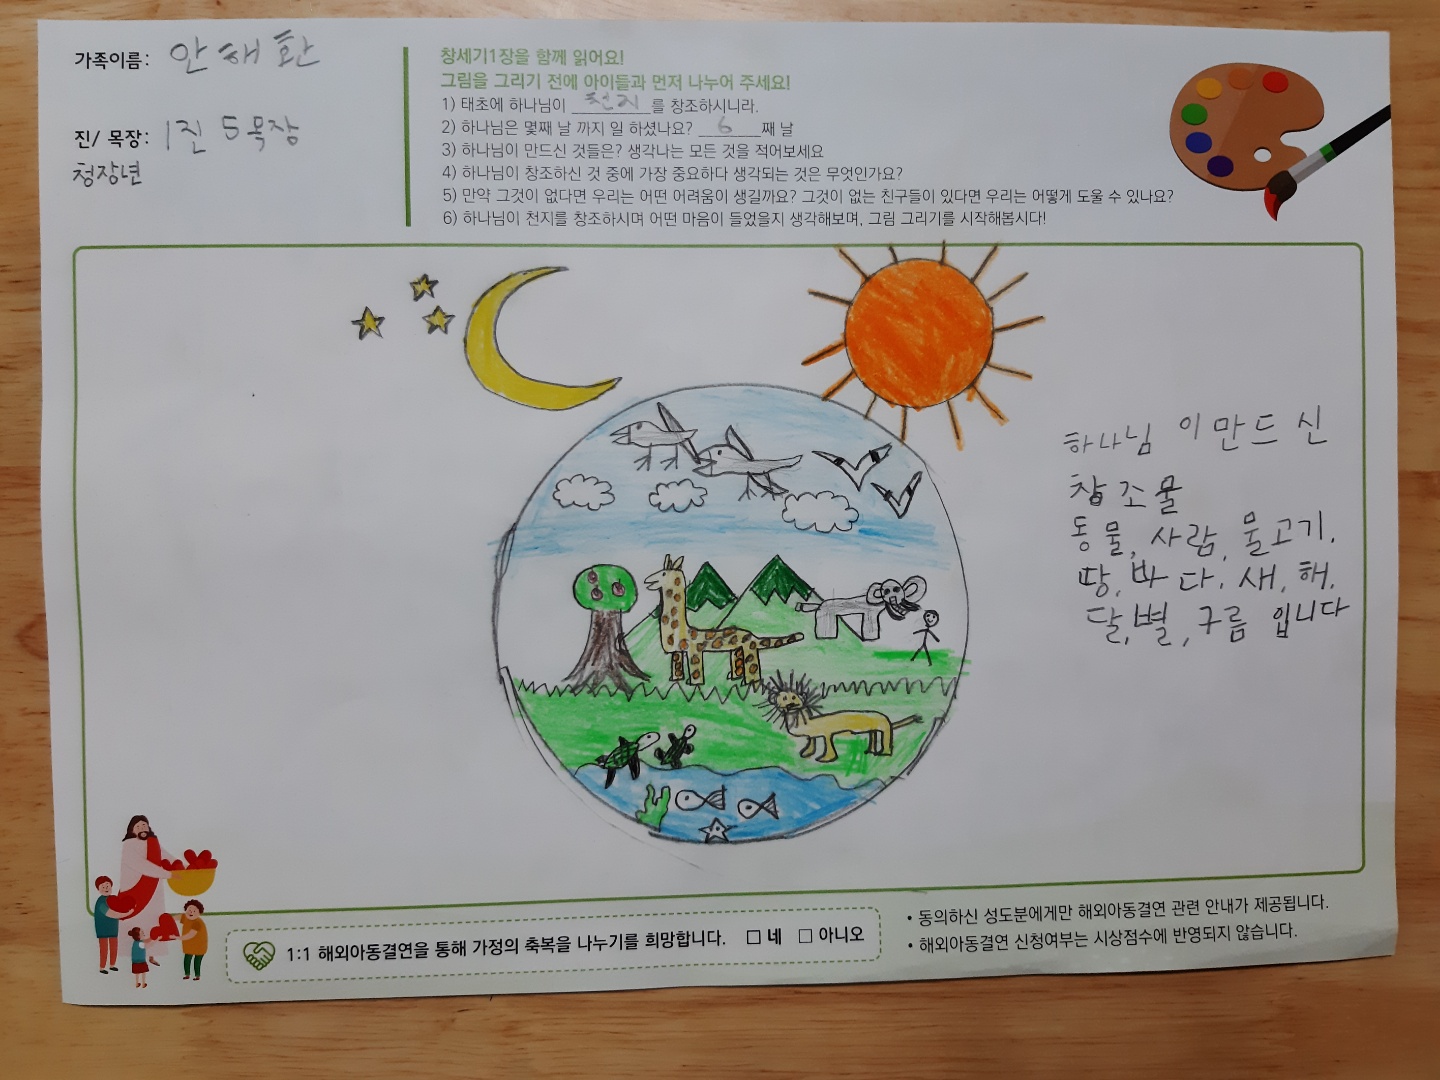 가족이름: 안해환
진/ 목장: 1진 5목장
청장년
창세기1장을 함께 읽어요!
그림을 그리기 전에 아이들과 먼저 나누어 주세요!
1) 태초에 하나님이 천지 를 창조하시니라.
2) 하나님은 몇째 날 까지 일 하셨나요? 6 째 날
3) 하나님이 만드신 것들은? 생각나는 모든 것을 적어보세요
4) 하나님이 창조하신 것 중에 가장 중요하다 생각되는 것은 무엇인가요?
5) 만약 그것이 없다면 우리는 어떤 어려움이 생길까요? 그것이 없는 친구들이 있다면 우리는 어떻게 도울 수 있나요?
6) 하나님이 천지를 창조하시며 어떤 마음이 들었을지 생각해보며, 그림 그리기를 시작해봅시다!
하나님 이 만드 신
창조물
동물, 사람, 물고기.
땅, 바다. 새, 해.
달, 별, 구름 입니다
1:1 해외아동결연을 통해 가정의 축복을 나누기를 희망합니다. □ 네 □ 아니오
• 동의하신 성도분에게만 해외아동결연 관련 안내가 제공됩니다.
• 해외아동결연 신청여부는 시상점수에 반영되지 않습니다.